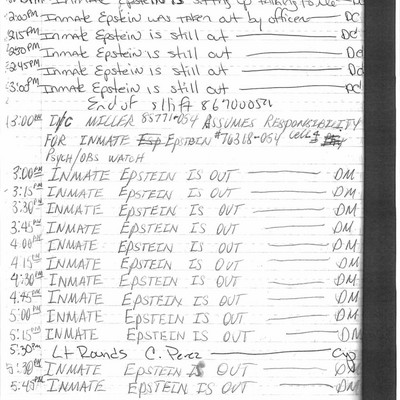 2:00PM Inmate Epstein was taken out by officer — DC
2:15PM Inmate Epstein is still out — DC
2:30PM Inmate Epstein is still out — DC
2:45PM Inmate Epstein is still out — DC
3:00PM Inmate Epstein is still out — DC
End of shift 86700054
3:00PM I/C MILLER 85771-054 ASSUMES RESPONSIBILITY
FOR INMATE Esp EPSTEIN #76318-054 cell 4
PSYCH/OBS WATCH
3:00PM INMATE EPSTEIN IS OUT — DM
3:15PM INMATE EPSTEIN IS OUT — DM
3:30PM INMATE EPSTEIN IS OUT — DM
3:45PM INMATE EPSTEIN IS OUT — DM
4:00PM INMATE EPSTEIN IS OUT — DM
4:15PM INMATE EPSTEIN IS OUT — DM
4:30PM INMATE EPSTEIN IS OUT — DM
4:45PM INMATE EPSTEIN IS OUT — DM
5:00PM INMATE EPSTEIN IS OUT — DM
5:15PM INMATE EPSTEIN IS OUT — DM
5:30PM Lt Rounds C. Perez —
5:30PM INMATE EPSTEIN IS OUT — DM
5:45PM INMATE EPSTEIN IS OUT — DM